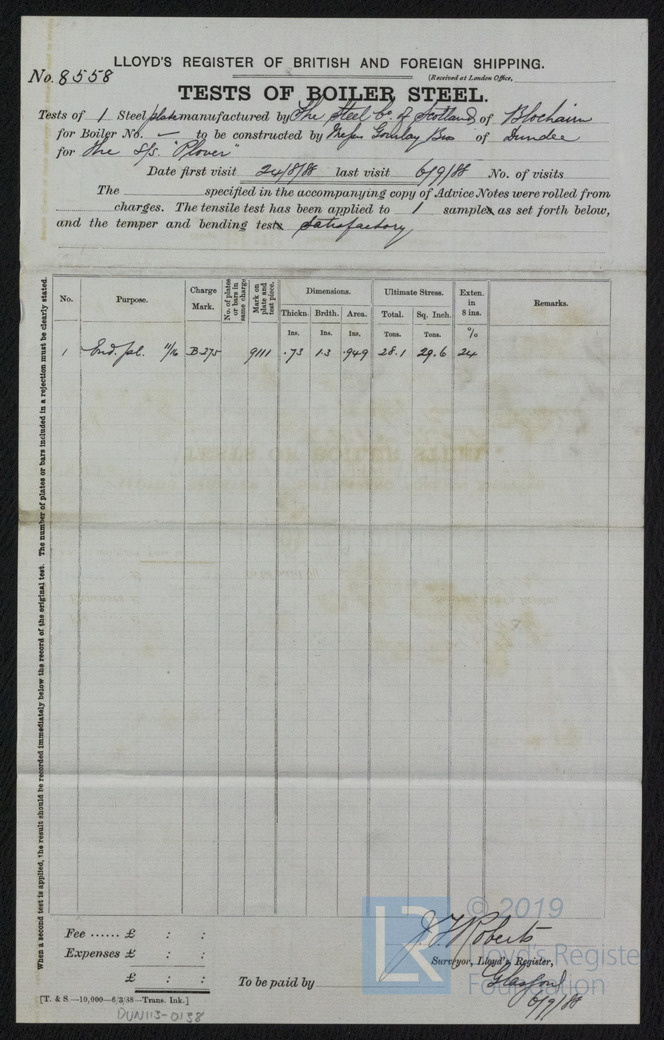 LLOYD'S REGISTER OF BRITISH AND FOREIGN SHIPPING.
No. 8558
(Received at London Office,
TESTS OF BOILER STEEL.
Tests of 1 Steel plate manufactured by The Steel Co of Scotland, of Blochairn
for Boiler No. — to be constructed by Messrs Gourlay Bros of Dundee
for the S/S. "Plover"
Date first visit 24/8/88 last visit 6/9/88 No. of visits
The specified in the accompanying copy of Advice Notes were rolled from
charges. The tensile test has been applied to 1 samples as set forth below,
and the temper and bending tests satisfactory
When a second test is applied, the result should be recorded immediately below the record of the original test. The number of plates or bars included in a rejection must be clearly stated.
No. Purpose. Charge Mark. No. of plates or bars in same charge Mark on plate and test piece. Dimensions. Ultimate Stress. Exten. in 8 ins. Remarks.
Thickn. Brdth. Area. Total. Sq. Inch.
Ins. Ins. Ins. Tons. Tons. %
1 End. pl. 11/16 B275 9111 .73 1.3 .949 28.1 29.6 24
Fee ...... £ : :
Expenses £ : :
£ : :
To be paid by
J. T. Roberts
Surveyor, Lloyd's Register,
Glasgow
6/9/88
[T. & S.—10,000—6/3/88—Trans. Ink.]
DUN113-0138
LR
© 2019
Lloyd's Register
Foundation